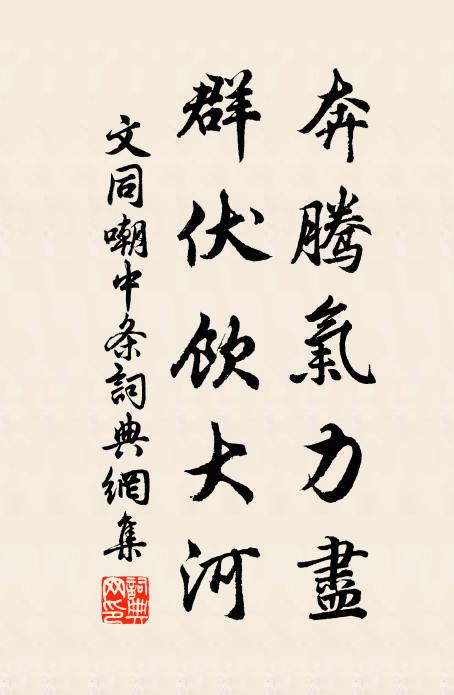 奔騰氣力盡
群伏飲大河
文同嘲中条詞典網集
詞典網印